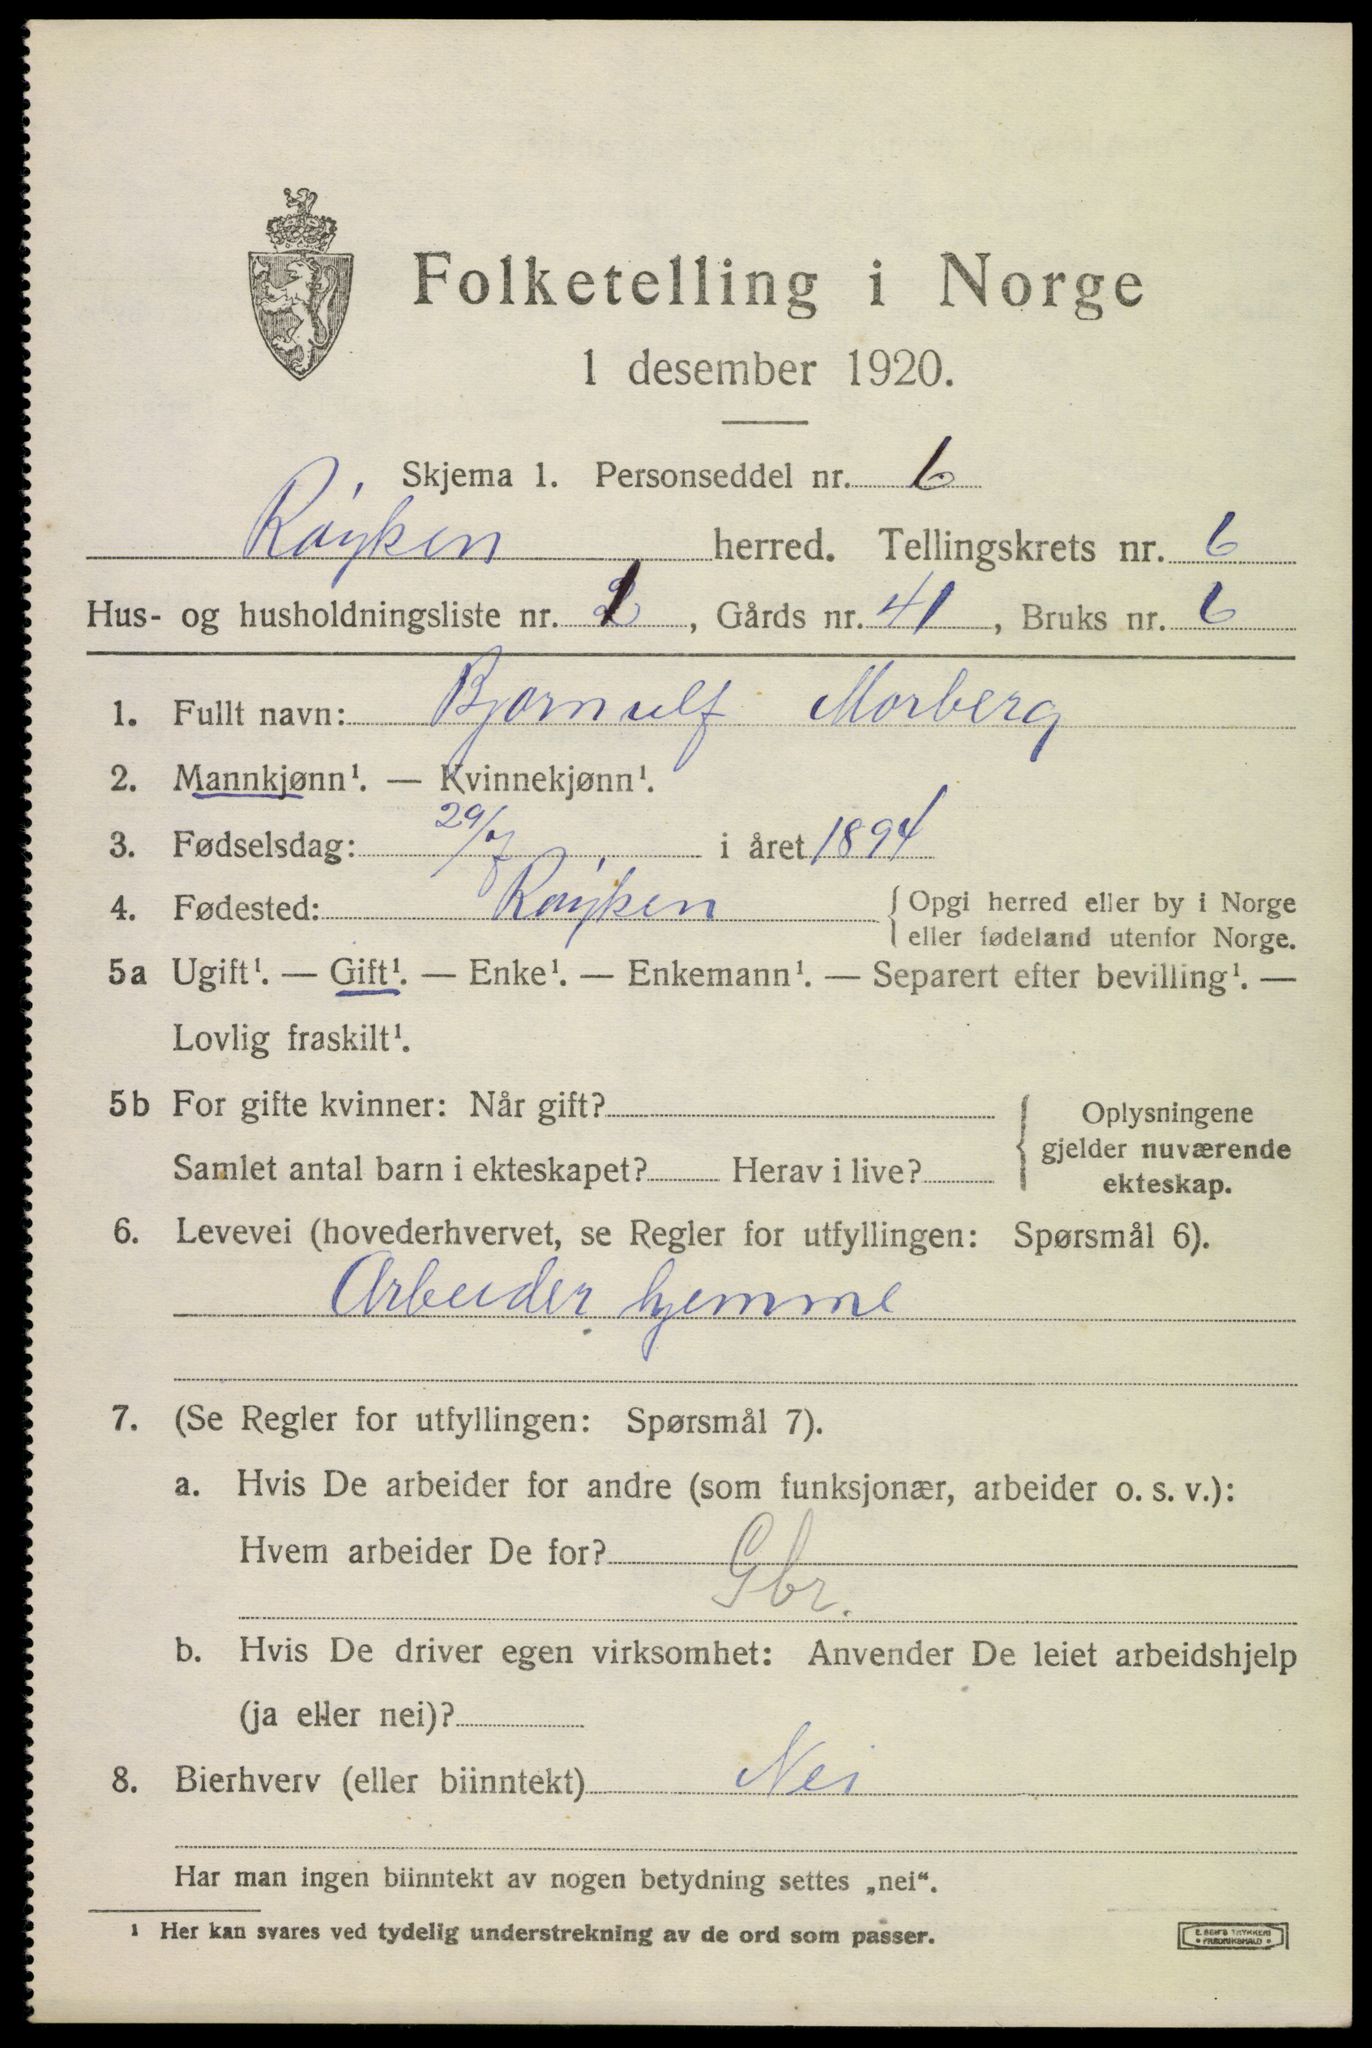 Folketelling i Norge
1 desember 1920.
Skjema 1. Personseddel nr. 6
Røyken herred. Tellingskrets nr. 6
Hus- og husholdningsliste nr. 1, Gårds nr. 41, Bruks nr. 6
1. Fullt navn: Bjørnulf Morberg
2. Mannkjønn¹. — Kvinnekjønn¹.
3. Fødselsdag: 29/7 i året 1894
4. Fødested: Røyken { Opgi herred eller by i Norge
eller fødeland utenfor Norge.
5a Ugift¹. — Gift¹. — Enke¹. — Enkemann¹. — Separert efter bevilling¹. —
Lovlig fraskilt¹.
5b For gifte kvinner: Når gift? { Oplysningene
gjelder nuværende
Samlet antal barn i ekteskapet? Herav i live? ekteskap.
6. Levevei (hovederhvervet, se Regler for utfyllingen: Spørsmål 6).
Arbeider hjemme
7. (Se Regler for utfyllingen: Spørsmål 7).
a. Hvis De arbeider for andre (som funksjonær, arbeider o. s. v.):
Hvem arbeider De for?
Gbr.
b. Hvis De driver egen virksomhet: Anvender De leiet arbeidshjelp
(ja eller nei)?
8. Bierhverv (eller biinntekt) Nei
Har man ingen biinntekt av nogen betydning settes „nei“.
¹ Her kan svares ved tydelig understrekning av de ord som passer.
E. SEM'S TRYKKERI
• FREDRIKSHALD •